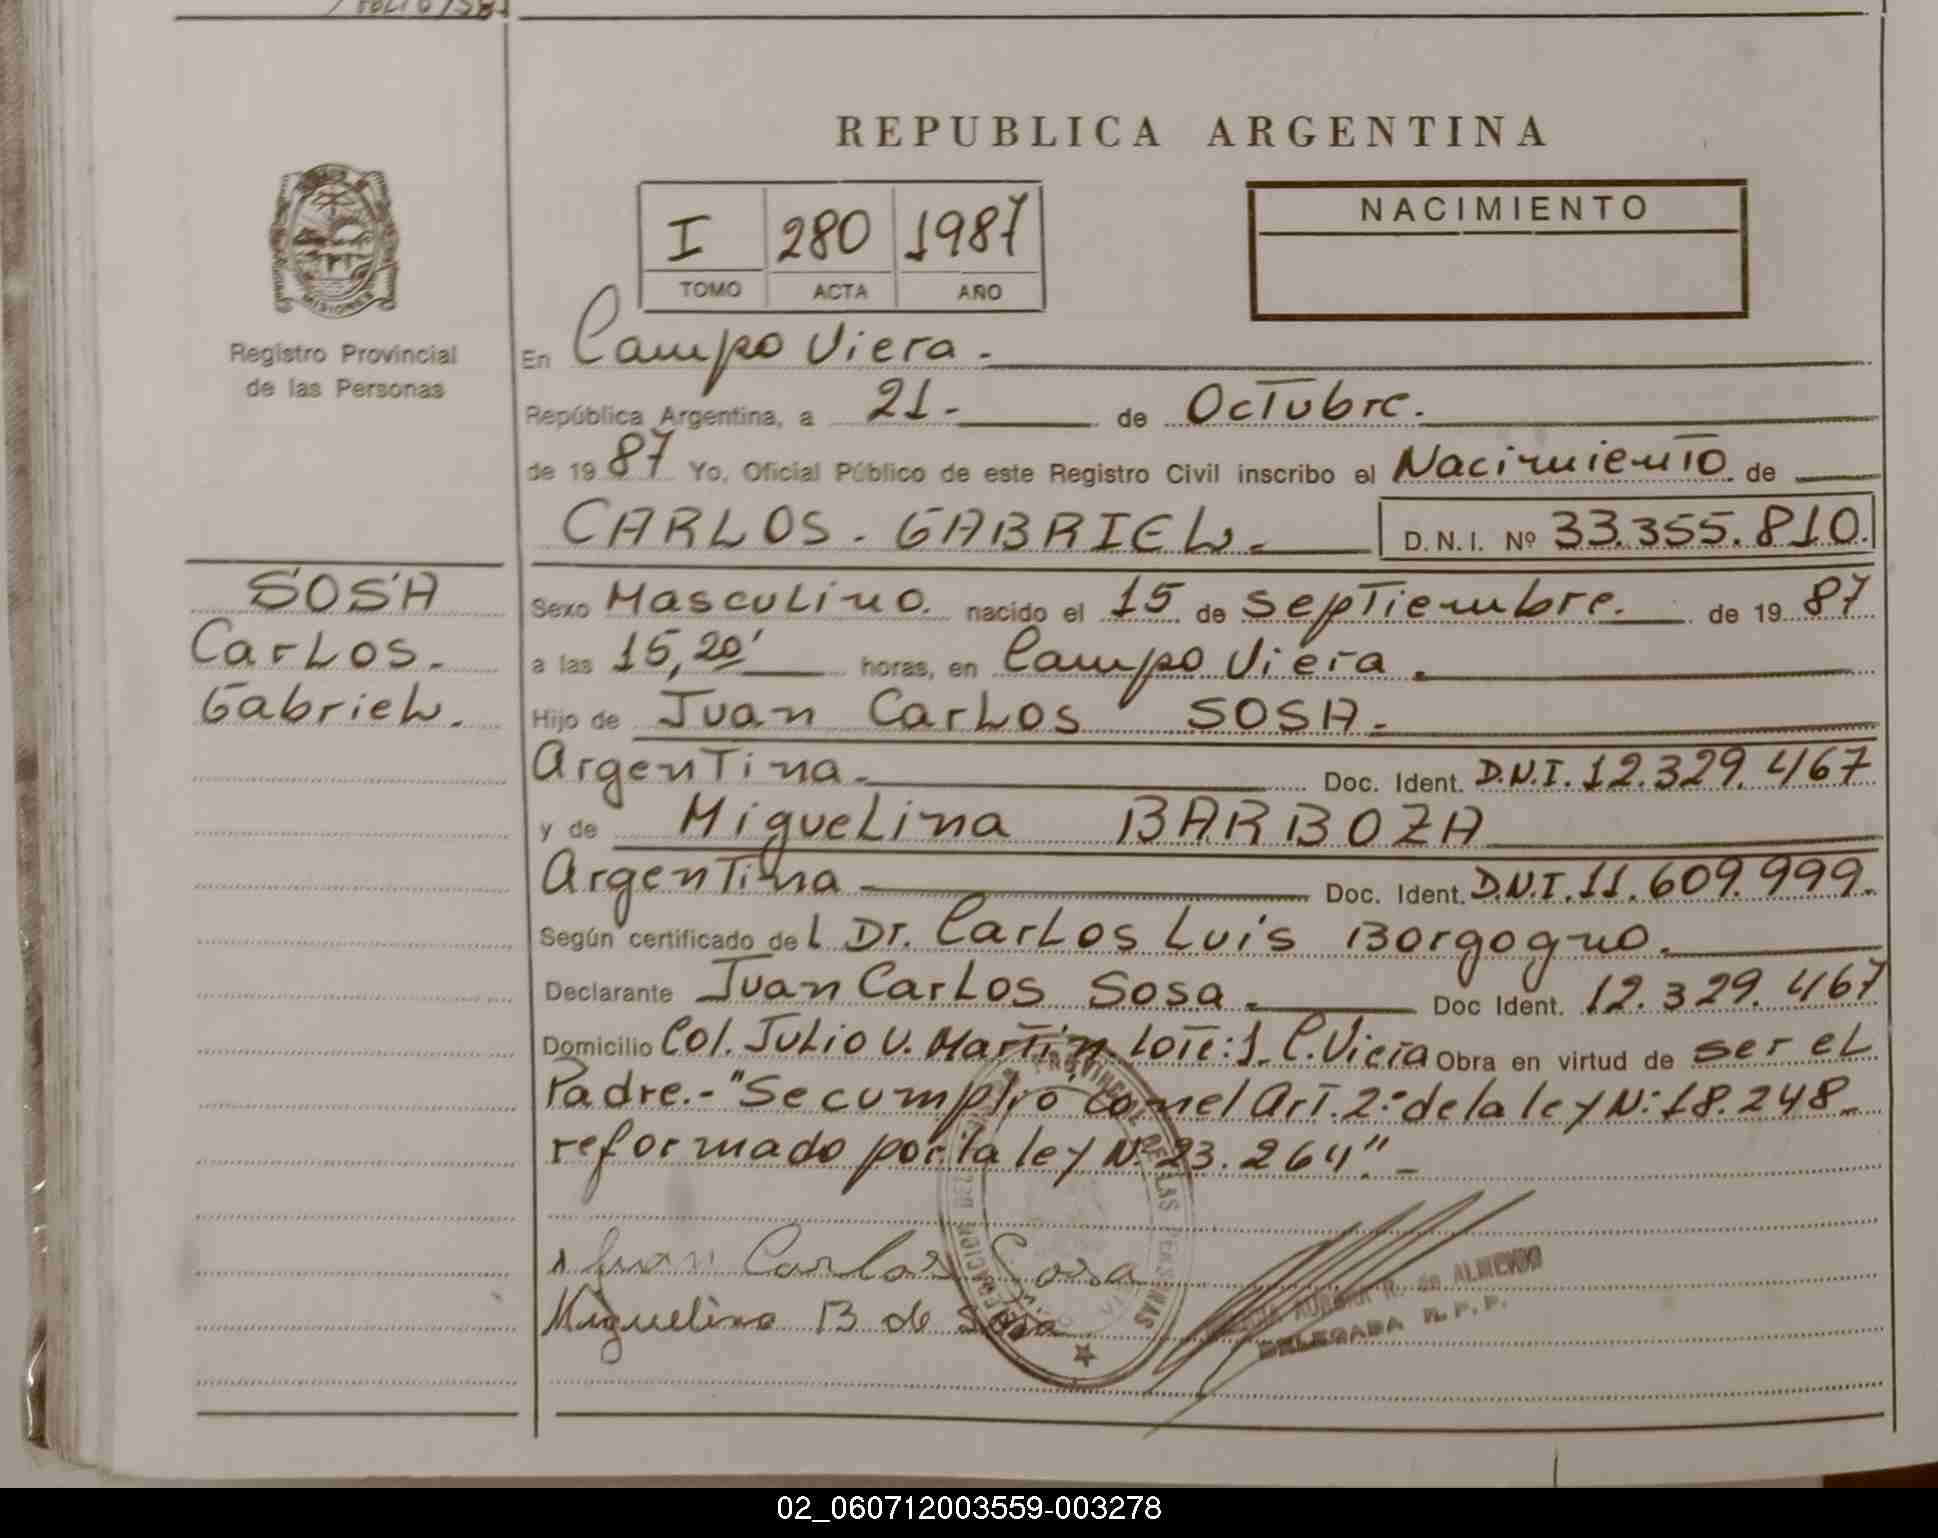 REPUBLICA ARGENTINA
MISIONES
Registro Provincial
de las Personas
I 280 1987
TOMO ACTA AÑO
NACIMIENTO
En Campo Viera.-
República Argentina, a 21.- de Octubre.
de 1987 Yo, Oficial Público de este Registro Civil inscribo el Nacimiento de
CARLOS. GABRIEL.- D.N.I. Nº 33.355.810.
SOSA
Carlos.-
Gabriel.
Sexo Masculino. nacido el 15 de septiembre. de 1987
a las 15,20' horas, en Campo Viera.
Hijo de Juan Carlos SOSA.-
Argentina.- Doc. Ident. D.N.I. 12.329.467
y de Miguelina BARBOZA
Argentina Doc. Ident. D.N.I. 11.609.999.
Según certificado del Dr. Carlos Luis Borgogno.
Declarante Juan Carlos Sosa.- Doc Ident. 12.329.467
Domicilio Col. Julio U. Martín. Lote: 1. C. Viera Obra en virtud de ser el
Padre.- "Se cumplió con el Art. 2º de la ley Nº 18.248
reformado por la ley Nº 23.264".-
Juan Carlos Sosa
Miguelina B de Sosa
PROVINCIAL DE LAS PERSONAS
AURORA R. de ALMENDO
DELEGADA R.P.P.
02_060712003559-003278